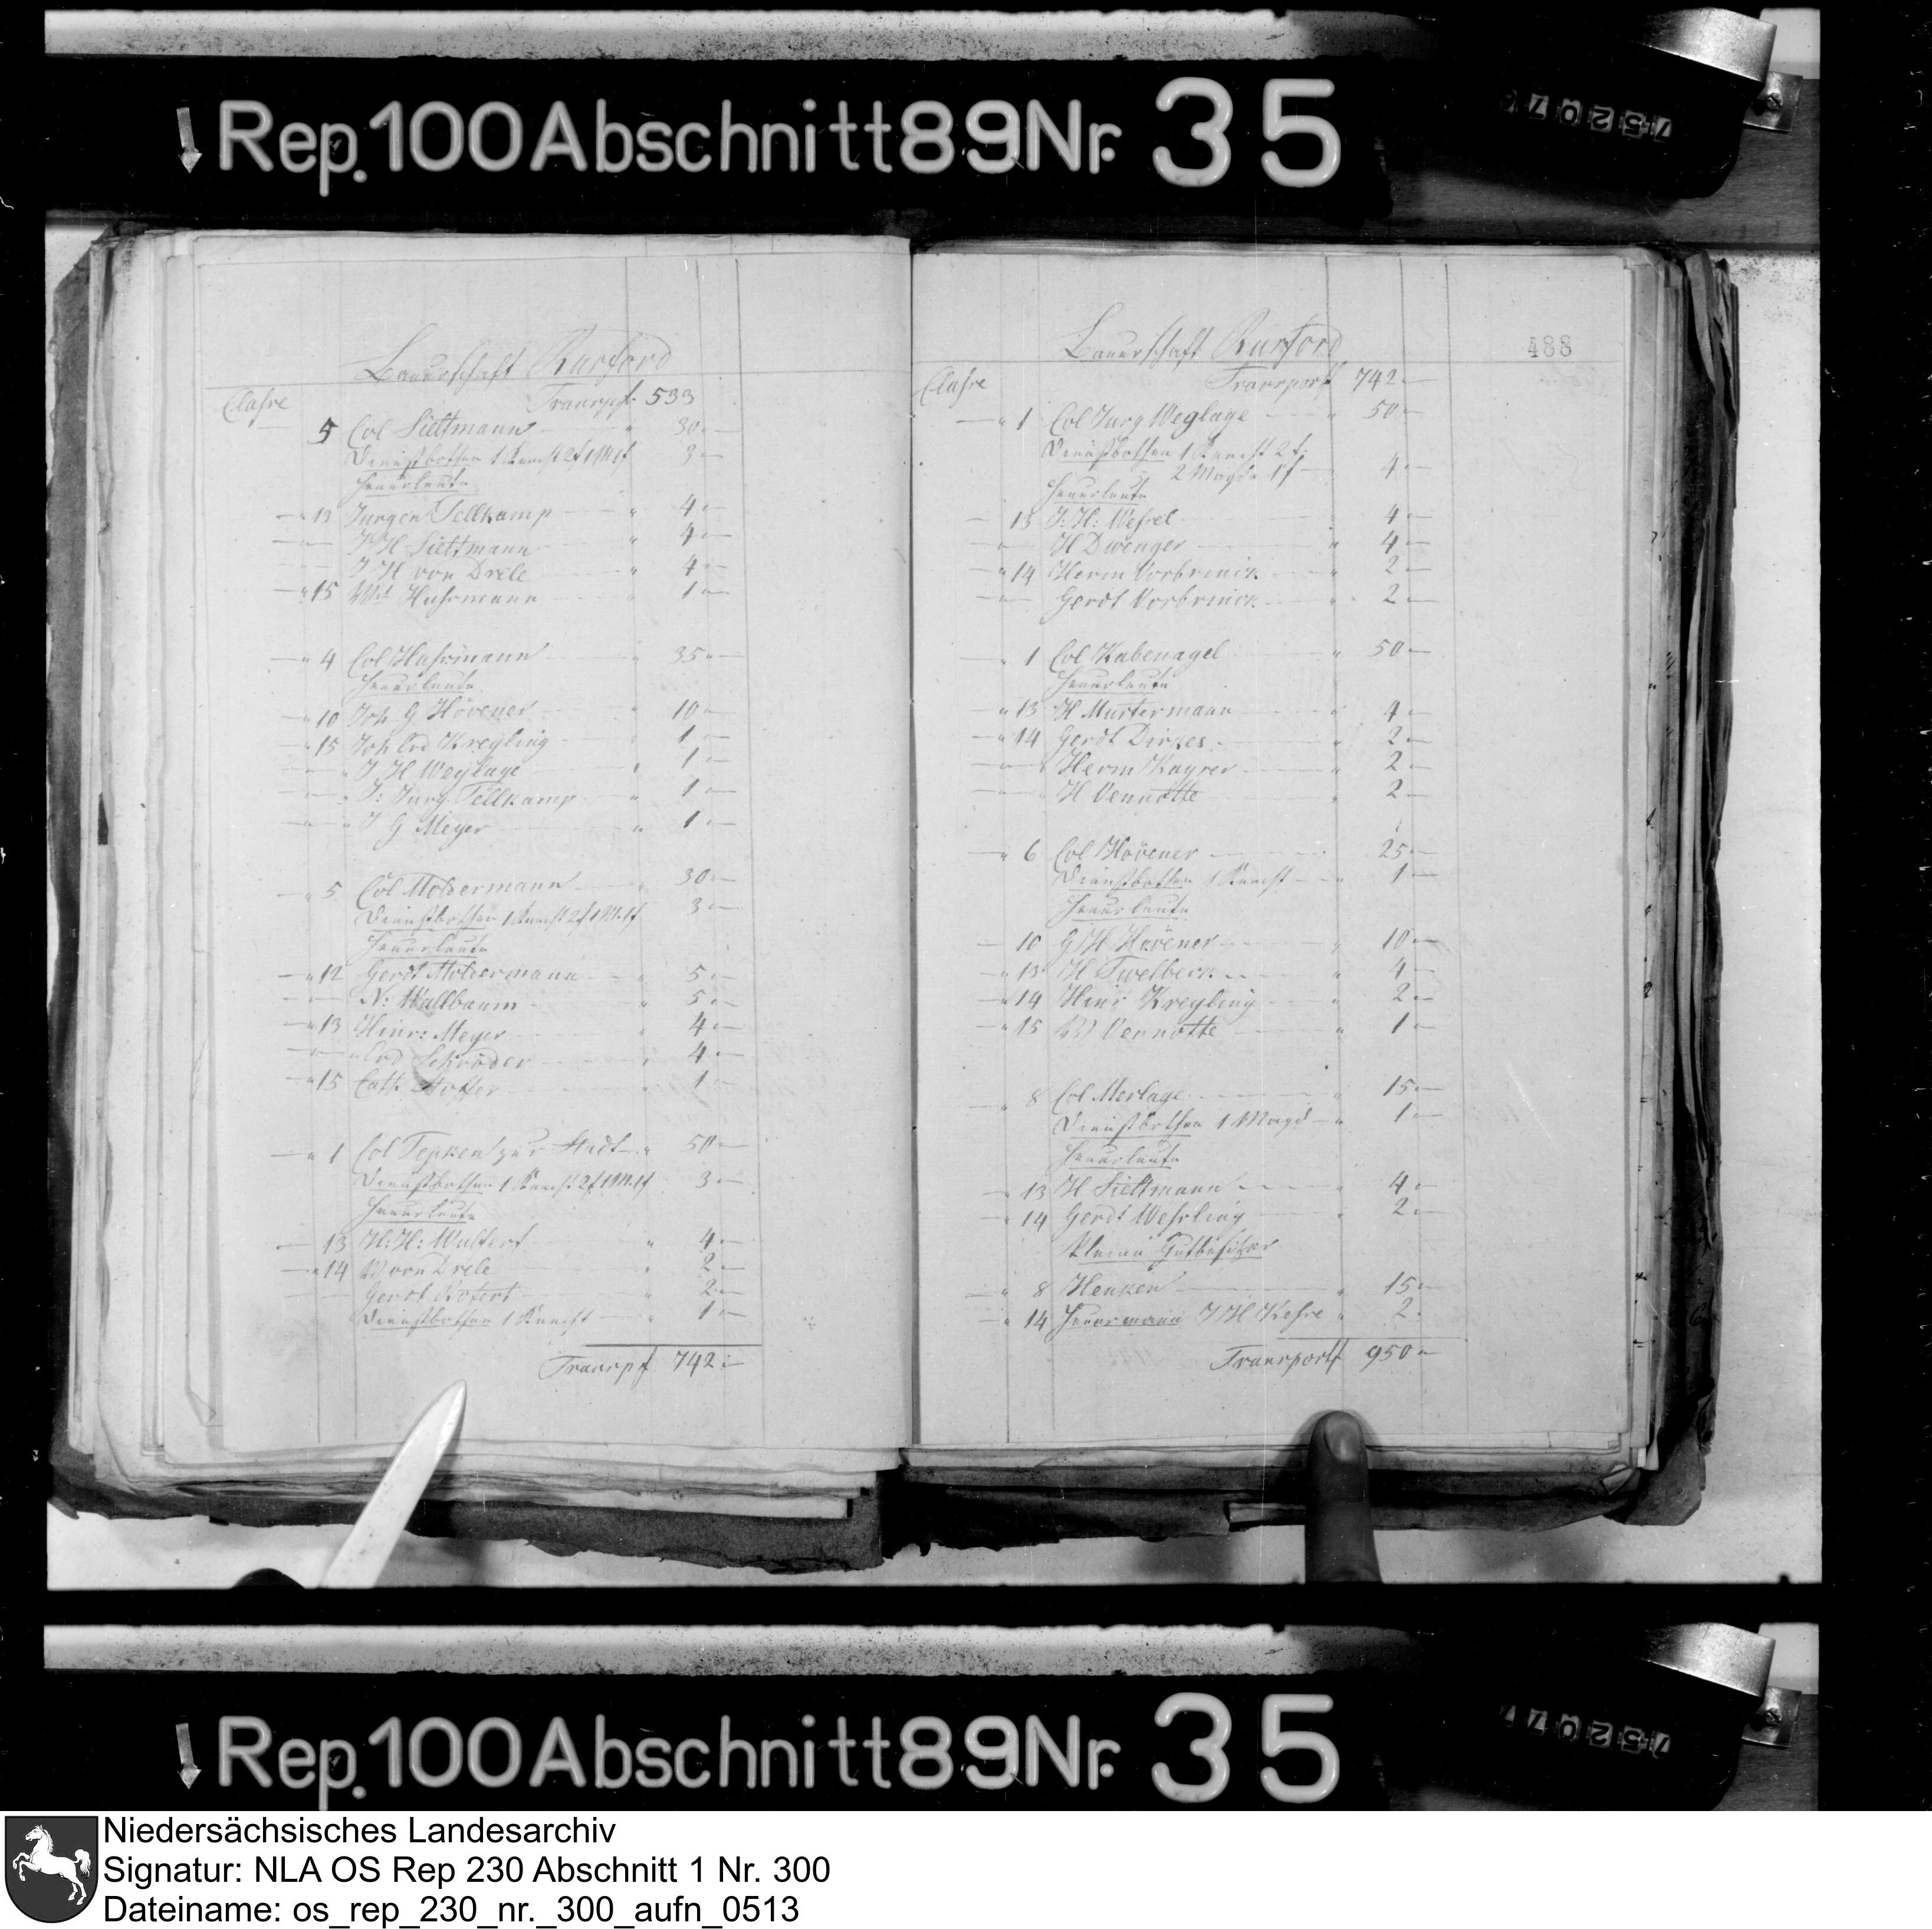 Rep. 100 Abschnitt 89 Nr. 35
75207
Bauerschaft Rüsford
Classe Transpt 533
5 Col Sieltmann " 30 "—
Dienstbothen 1 Knecht 2f 1 M 1f 3 —
Heuerleute
— " 13 Jurgen Tellkamp — " 4 "—
— " — J H Sieltmann — " 4 "—
J H von Drele — " 4 "—
" 15 Wit Huhrmann — " 1 "—
— " 4 Col Huhrmann — " 35 "—
Heuerleute
— " 10 Joh G Hövener — " 10 "—
— " 15 Joh Crd Kregling — " 1 "—
— " — J H Weglage — " 1 "—
— " — J: Jurg Tellkamp " 1 "—
— " — J G Meyer — " 1 "—
— " 5 Col Moldermann — " 30 "—
Dienstbothen 1 Knecht 2f 1 M. 1f 3 "—
Heuerleute
— " 12 Gerdt Moldermann — " 5 "—
— " — N: Wallbaum — " 5 "—
— " 13 Hinr: Meyer — " 4 "—
— " — Crd Schröder — " 4 "—
— " 15 Cath — " 1 —
— " 1 Col Tepken zur Stadt — " 50 "—
Dienstbothen 1 Knecht 2f 1 M. 1f 3 "—
Heuerleute
— " 13 H: H: Wulfert — " 4 "—
— " 14 W von Drele — " 2 "—
Gerdt Rofert — " 2 "—
Dienstbothen 1 Knecht — " 1 "—
Transpt 742 "—
Bauerschaft Rüsford
488
Classe Transport 742 "—
— " 1 Col Jurg Weglage — " 50 "—
Dienstbothen 1 Knecht 2 f.
2 Mägde 1f — 4 "—
Heuerleute
— 13 J: H: Wessel — 4 "—
— " — H Dwenger — " 4 "—
— " 14 Herm Vorbrinck — " 2 "—
— " — Gerdt Vorbrinck — " 2 "—
— " 1 Col Kabenagel — " 50 "—
Heuerleute
— " 13 H Murtermann — " 4 "—
— " 14 Gerdt Dirkes — " 2 "—
— " — Herm Kayser — " 2 "—
— " — H Vennotte — " 2 —
— " 6 Col Hövener — 25 "—
Dienstbothen 1 Knecht — " 1 "—
Heuerleute
— 10 G H Hövener — " 10 "—
— " 13 H Twelbeck — " 4 "—
— " 14 Hinr Kregling — " 2 "—
— " 15 W Vennotte — " 1 "—
— " 8 Col Merlage — " 15 "—
Dienstbothen 1 Magd — " 1 "—
Heuerleute
— " 13 H Sieltmann — " 4 "—
— " 14 Gerdt Wehrling — " 2 "—
Kleine Gutbesitzer
— " 8 Henken — " 15 "—
— " 14 Heuermann J H Kesse " 2 "
Transport 950 "—
Rep. 100 Abschnitt 89 Nr. 35
752077
Niedersächsisches Landesarchiv
Signatur: NLA OS Rep 230 Abschnitt 1 Nr. 300
Dateiname: os_rep_230_nr._300_aufn_0513